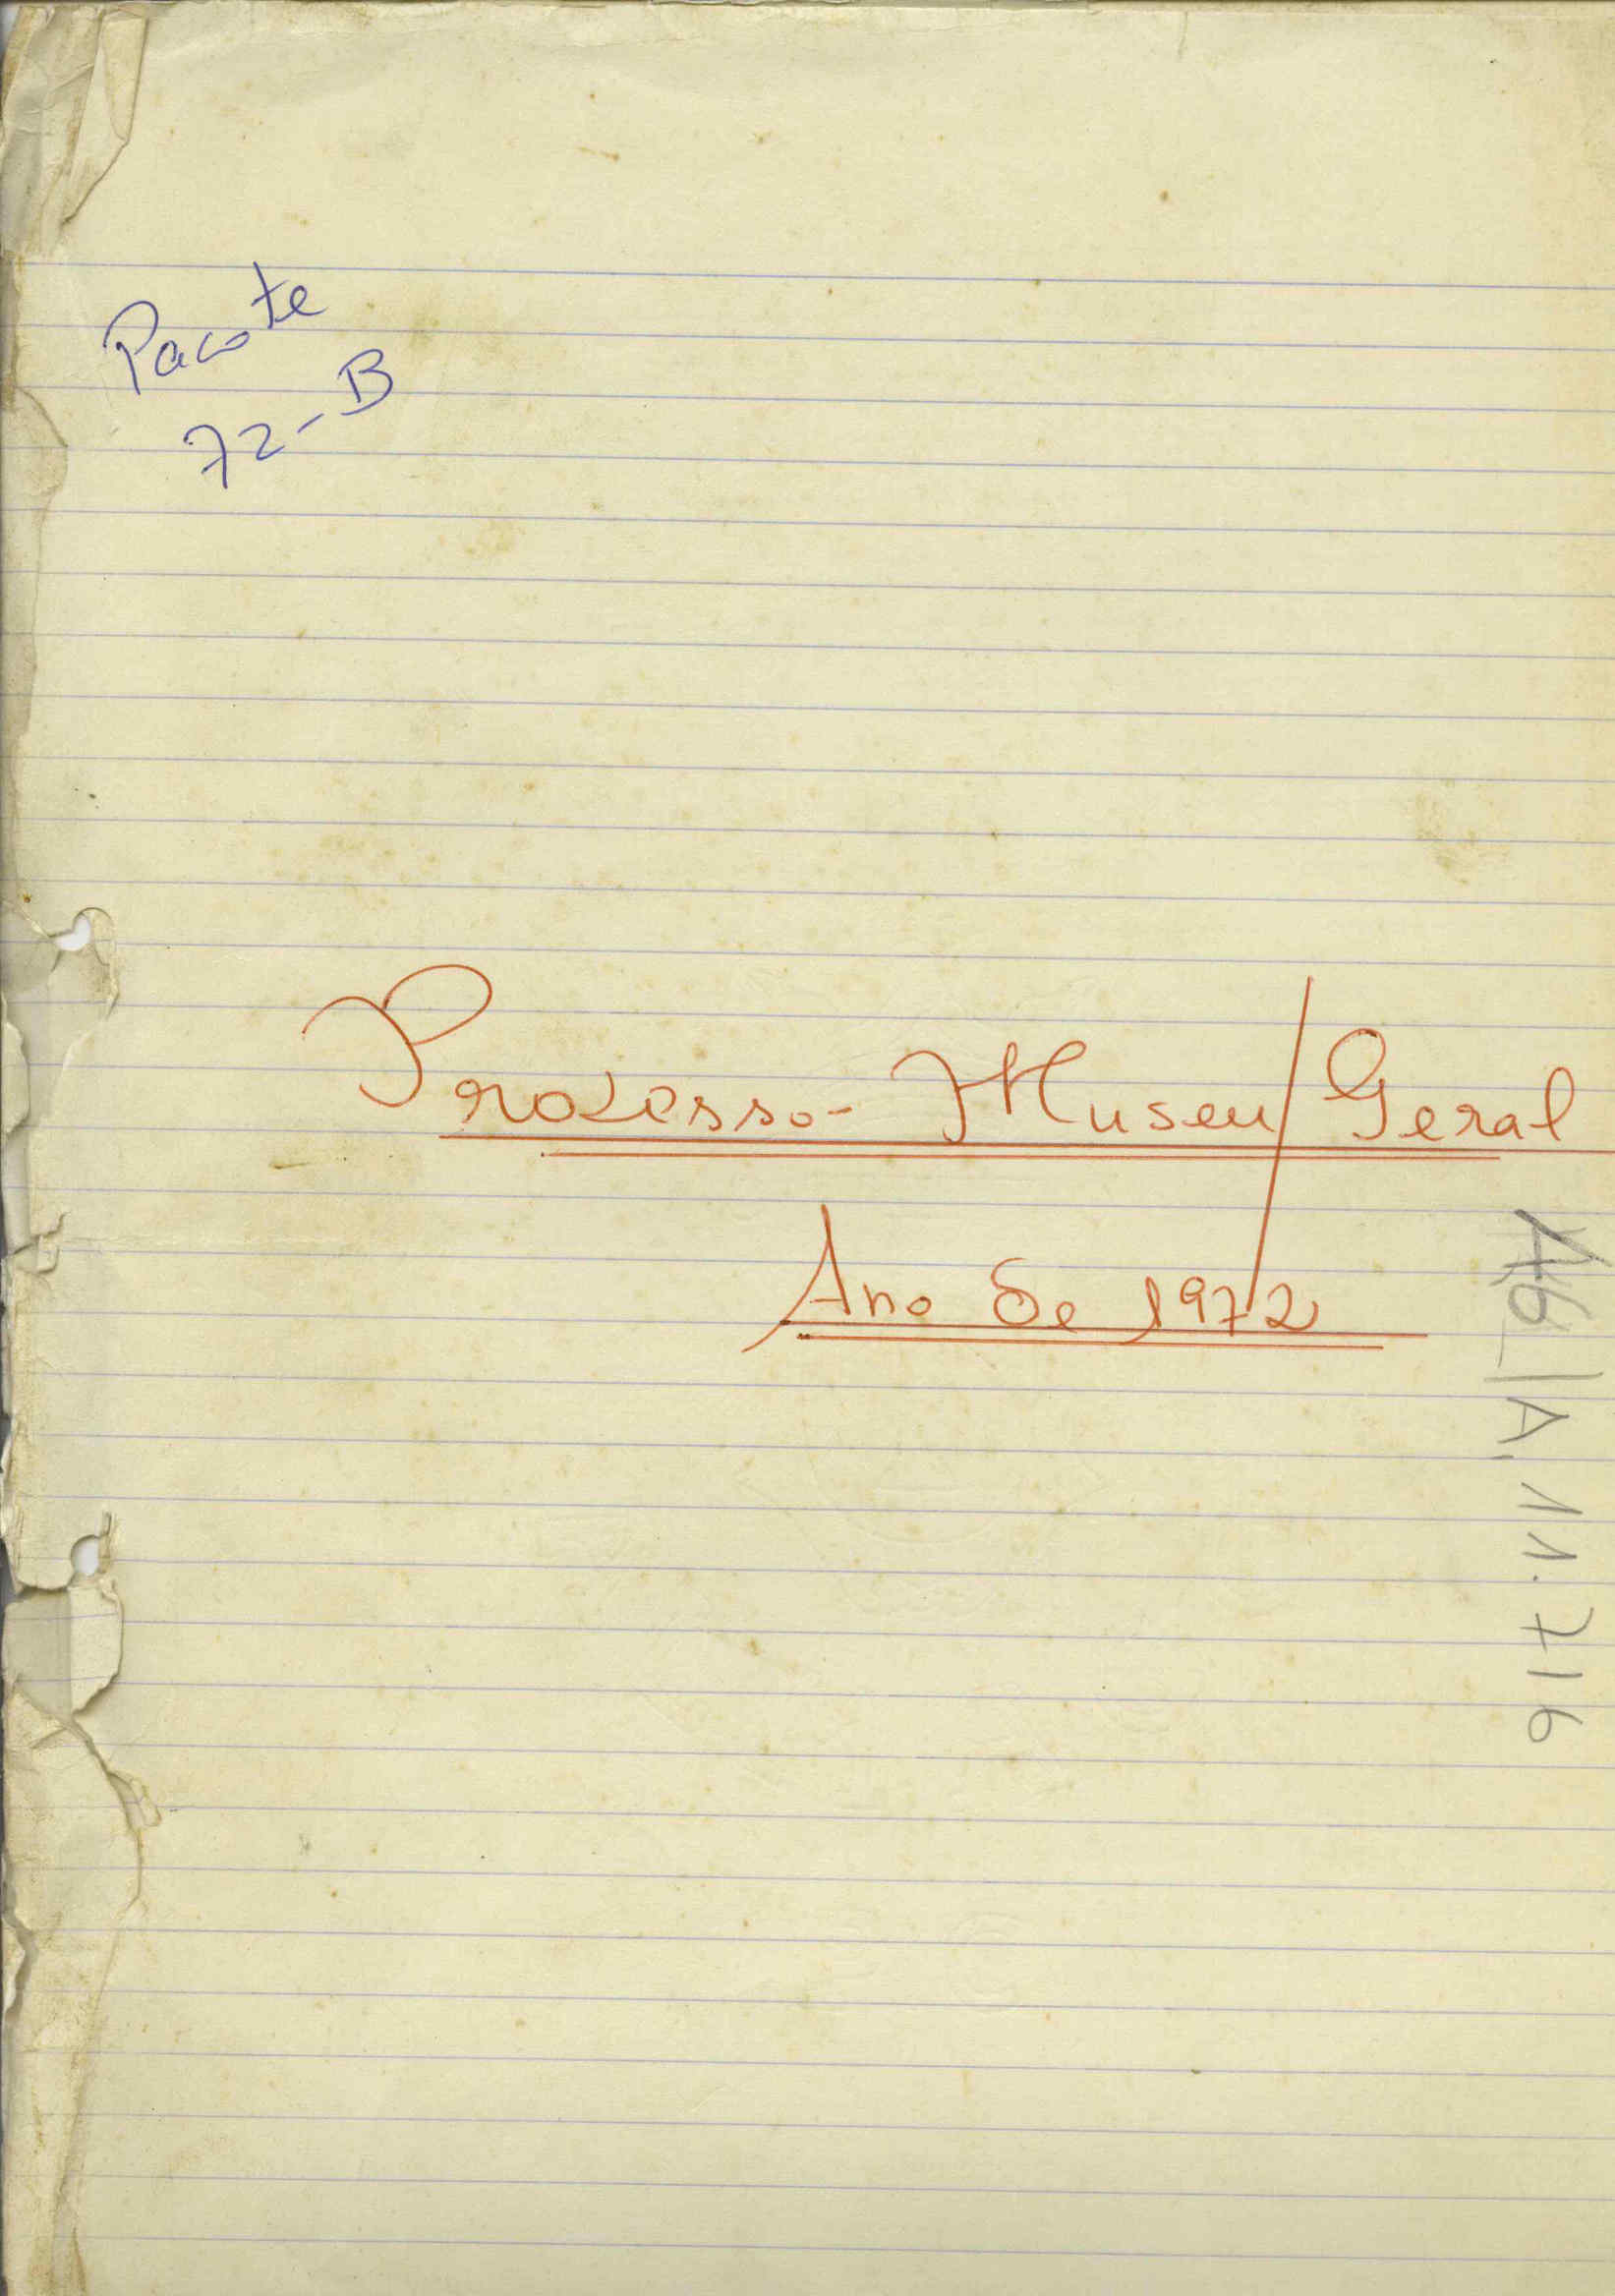 Pacote
72-B
Processo- Museu/Geral
Ano de 1972
A. 11. 716